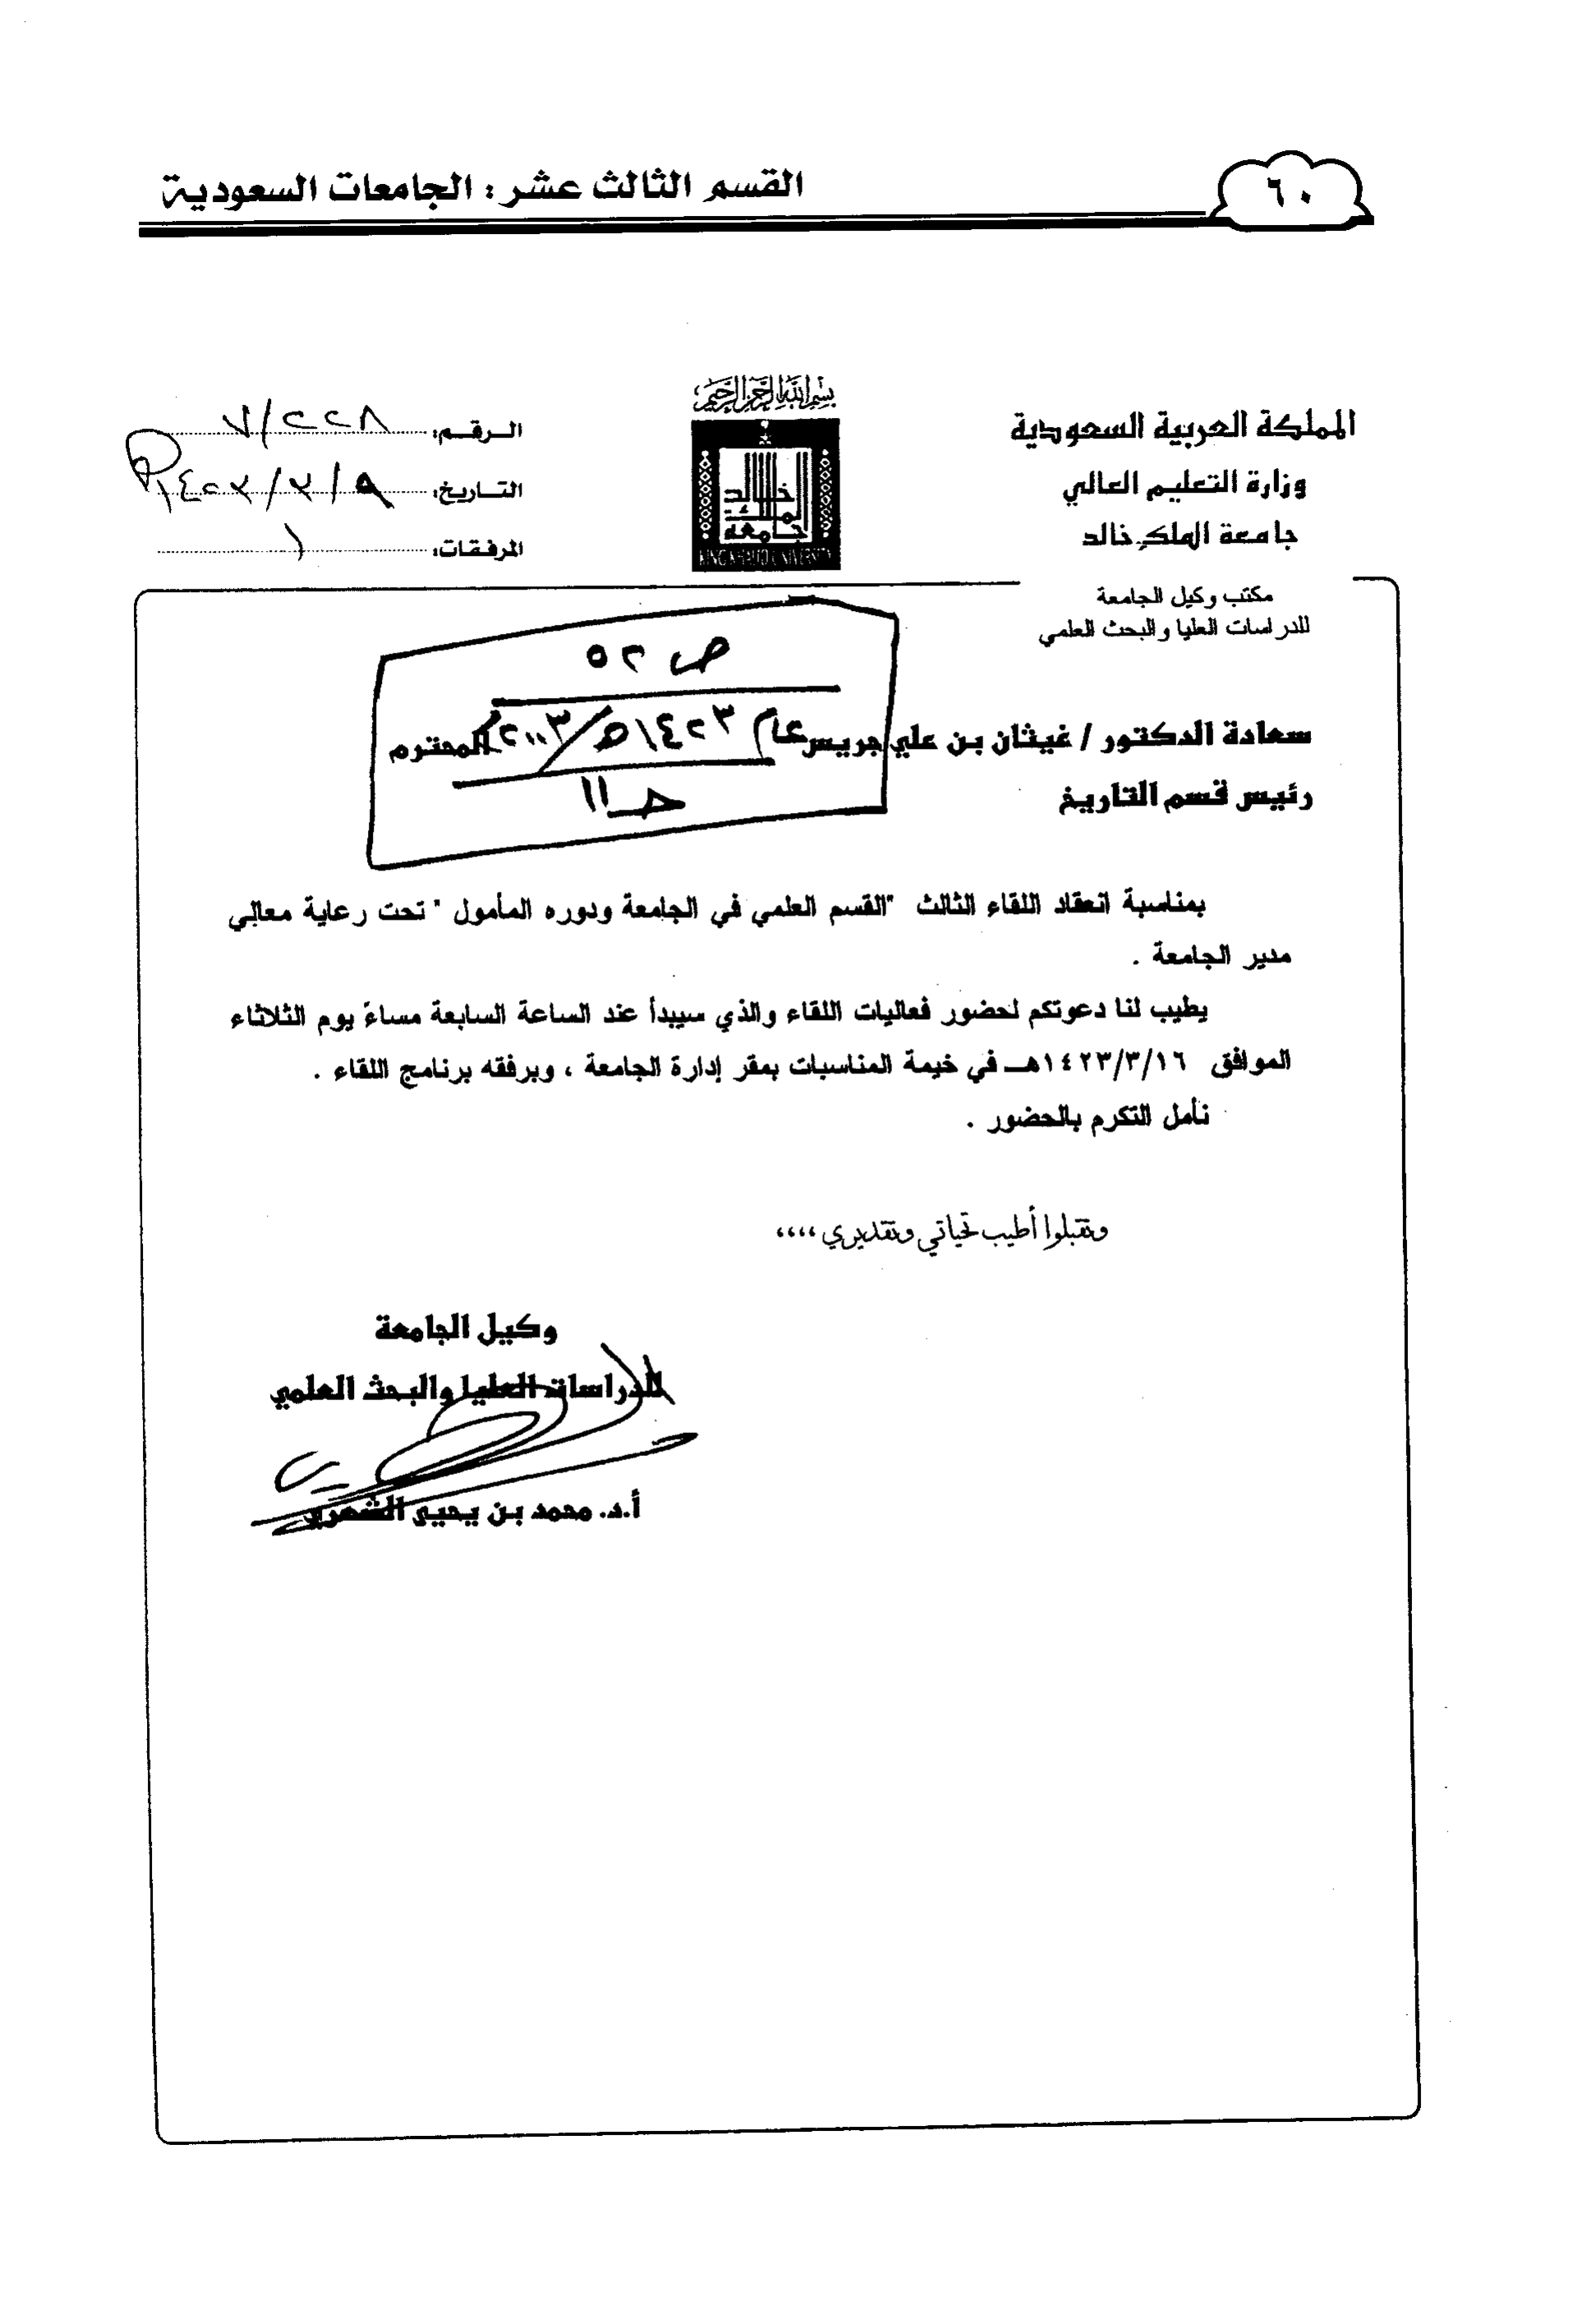 ٦٠
القسم الثالث عشر : الجامعات السعودية
بسم الله الرحمن الرحيم
المملكة العربية السعودية
وزارة التعليم العالي
جامعة الملك خالد
مكتب وكيل الجامعة
للدراسات العليا والبحث العلمي
جامعة الملك خالد
KING KHALID UNIVERSITY
الرقم: ٧/٢٢٨
التاريخ: ١٤٢٣/٣/٩
المرفقات: ١
ص ٥٢
عام ١٤٢٣هـ/٢٠٠٣م
حـ ١١
سعادة الدكتور / غيثان بن علي جريس المحترم
رئيس قسم التاريخ
بمناسبة انعقاد اللقاء الثالث "القسم العلمي في الجامعة ودوره المأمول" تحت رعاية معالي
مدير الجامعة .
يطيب لنا دعوتكم لحضور فعاليات اللقاء والذي سيبدأ عند الساعة السابعة مساءً يوم الثلاثاء
الموافق ١٤٢٣/٣/١٦هـ في خيمة المناسبات بمقر إدارة الجامعة ، وبرفقه برنامج اللقاء .
نأمل التكرم بالحضور .
وتقبلوا أطيب تحياتي وتقديري ،،،،
وكيل الجامعة
للدراسات العليا والبحث العلمي
أ.د. محمد بن يحيى الشهري